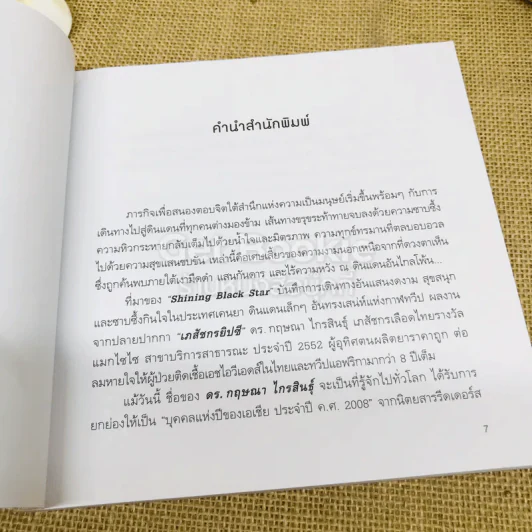 คำนำสำนักพิมพ์
ภารกิจเพื่อสนองตอบจิตใต้สำนึกแห่งความเป็นมนุษย์เริ่มขึ้นพร้อมๆ กับการ
เดินทางไปสู่ดินแดนที่ทุกคนต่างมองข้าม เส้นทางขรุขระท้าทายจบลงด้วยความซาบซึ้ง
ความหิวกระหายกลับเต็มไปด้วยน้ำใจและมิตรภาพ ความทุกข์ทรมานที่ตลบอบอวล
ไปด้วยความสุขแสนชบขัน เหล่านี้คือเศษเสี้ยวของความงามนอกเหนือจากที่ดวงตาเห็น
ซึ่งถูกค้นพบภายใต้เงามืดดำ แสนกันดาร และไร้ความหวัง ณ ดินแดนอันไกลโพ้น...
ที่มาของ "Shining Black Star" บันทึกการเดินทางอันแสนงดงาม สุขสนุก
และซาบซึ้งกินใจในประเทศเคนยา ดินแดนเล็กๆ อันทรงเสน่ห์แห่งกาฬทวีป ผลงาน
จากปลายปากกา "เภสัชกรยิปซี" ดร.กฤษณา ไกรสินธุ์ เภสัชกรเลือดไทยรางวัล
แมกไซไซ สาขาบริการสาธารณะ ประจำปี 2552 ผู้อุทิศตนผลิตยาราคาถูก ต่อ
ลมหายใจให้ผู้ป่วยติดเชื้อเอชไอวีเอดส์ในไทยและทวีปแอฟริกามากว่า 8 ปีเต็ม
แม้วันนี้ ชื่อของ ดร.กฤษณา ไกรสินธุ์ จะเป็นที่รู้จักไปทั่วโลก ได้รับการ
ยกย่องให้เป็น "บุคคลแห่งปีของเอเชีย ประจำปี ค.ศ. 2008" จากนิตยสารรีดเดอร์ส
7